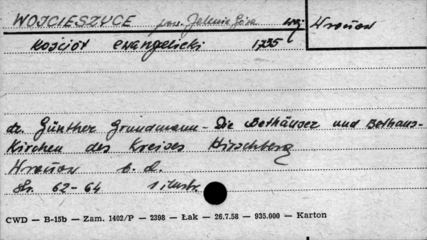 WOJCIESZYCE pow. Jelenia Góra woj. Wrocław
Kościół ewangelicki 1735
dr. Günther Grundmann - Die Bethäuser und Bethaus-
Kirchen des Kreises Hirschberg
Wrocław b. d.
St. 62-64 1 ilustr.
CWD — B-15b — Zam. 1402/P — 2398 — Łak — 26.7.58 — 935.000 — Karton